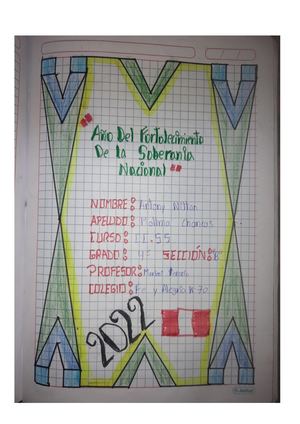 "Año Del Fortalecimiento
De la Soberania
Nacional"
NOMBRE: Antony Wilton
APELLIDO: Mallma Chancas
CURSO: CC.SS
GRADO: 4º SECCIÓN: "B"
PROFESOR:
COLEGIO: Fe y Alegría N 70
2022